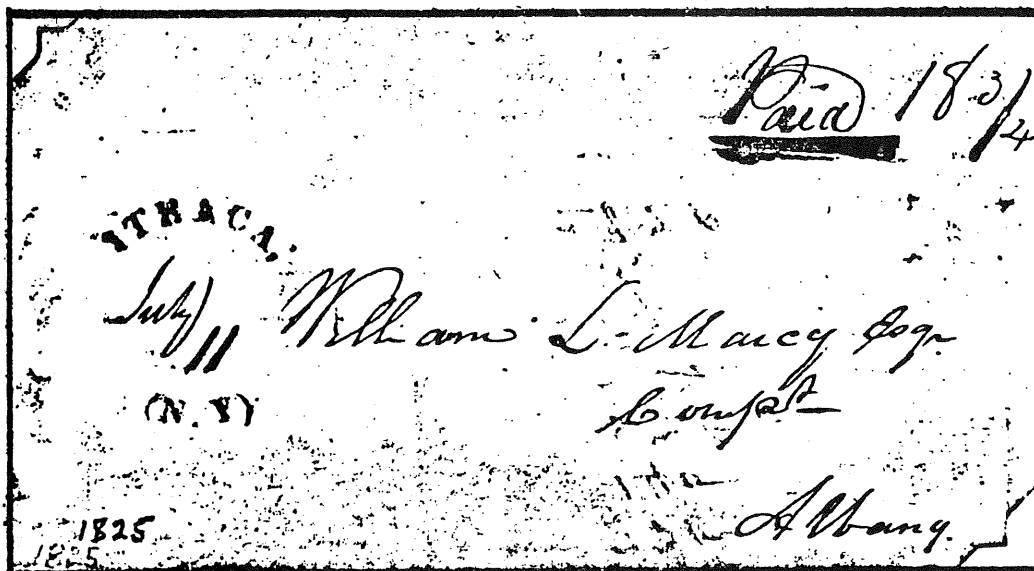 Paid 18 3/4
ITHACA.
July 11
(N.Y)
William L. Marcy Esqr
Compt
Albany.
1825
1825